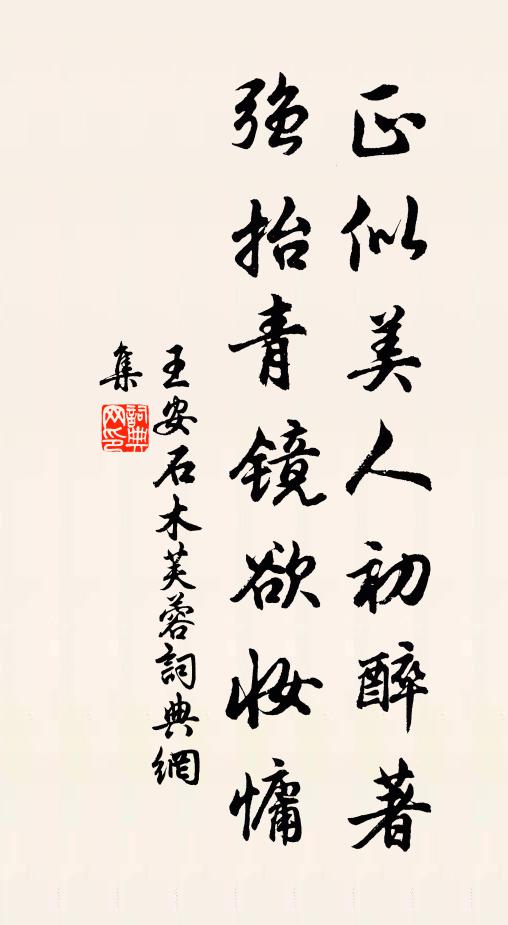 正似美人初醉著
强抬青镜欲妆慵
王安石木芙蓉詞典網
集
詞典网印